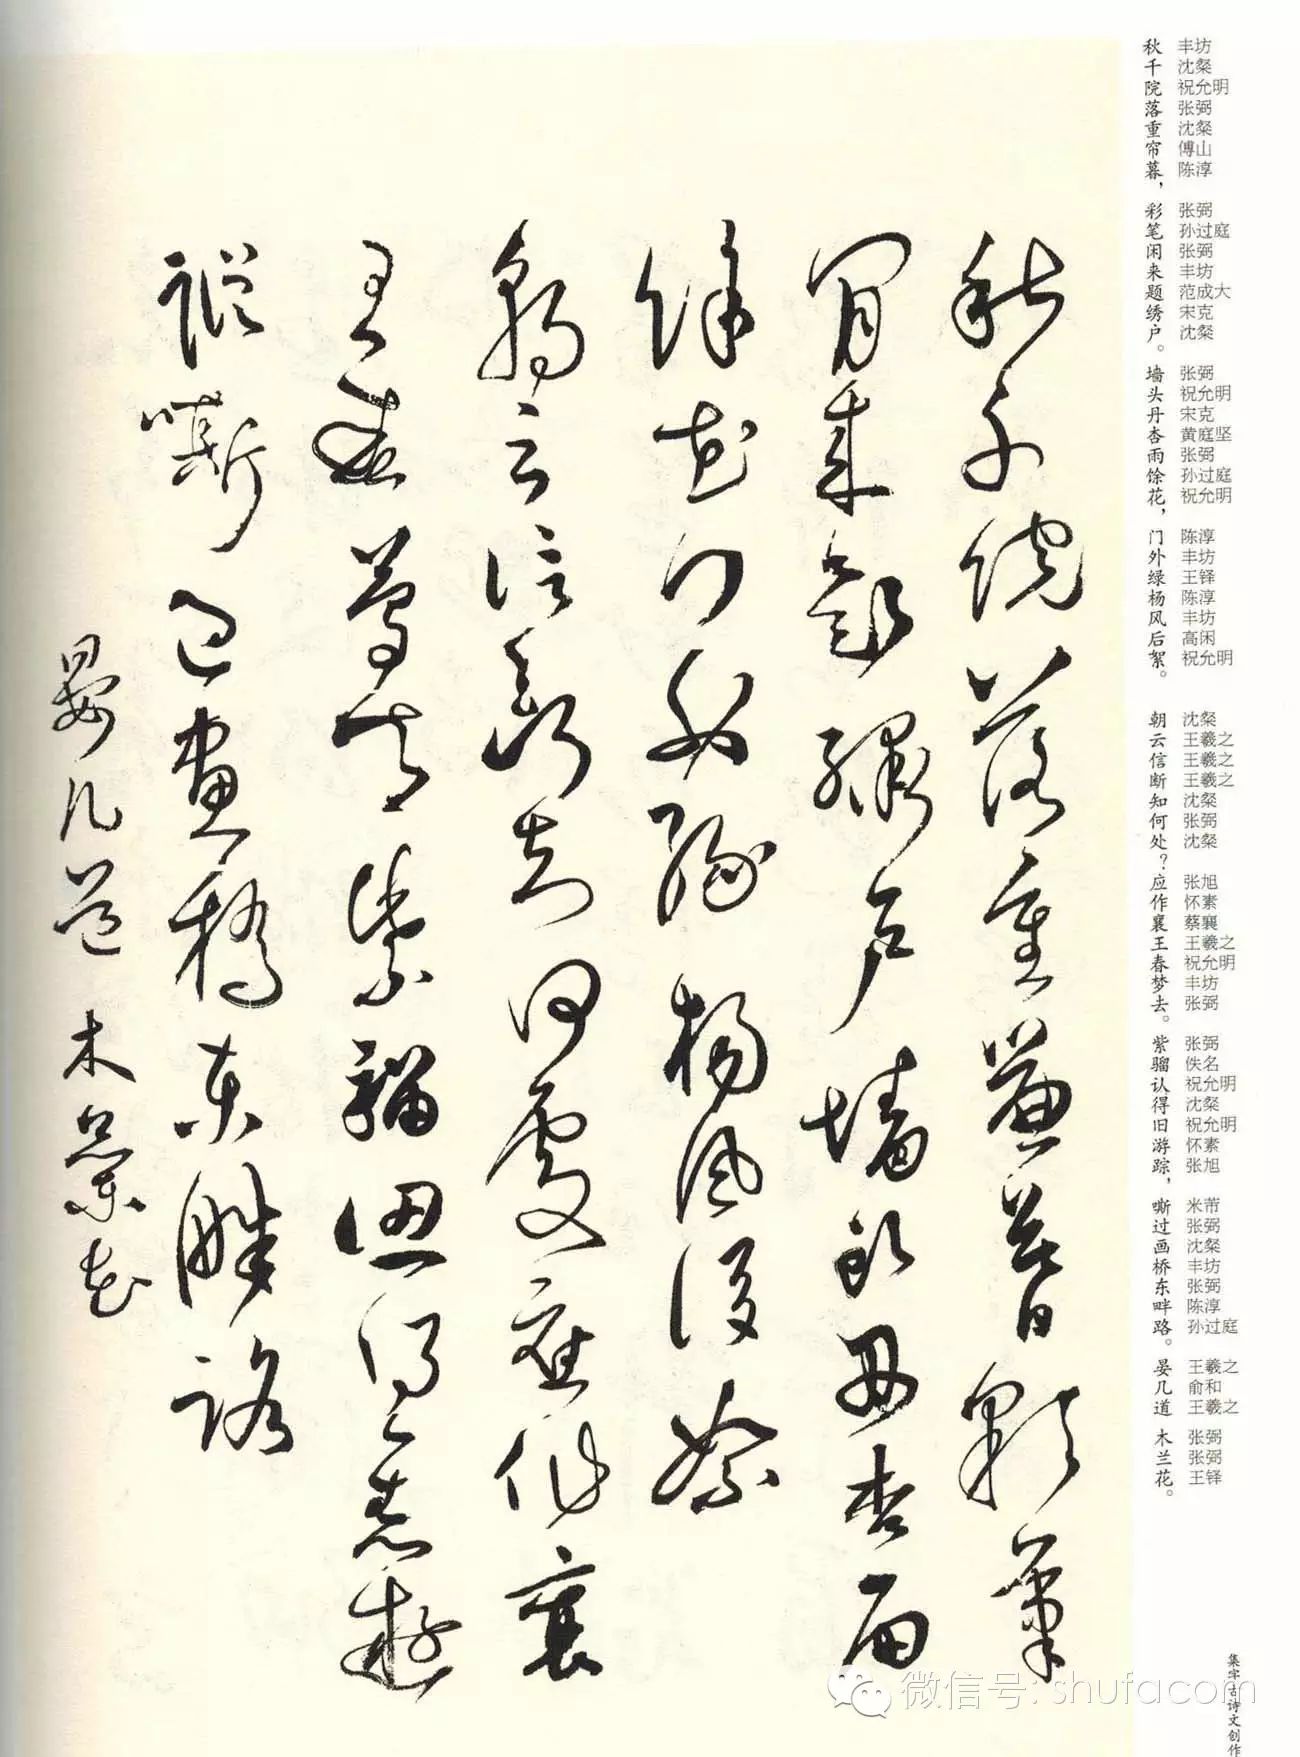 丰坊 沈粲 祝允明 张弼 沈粲 傅山 陈淳 张弼 孙过庭 张弼 丰坊 范成大 宋克 沈粲 张弼 祝允明 宋克 黄庭坚 张弼 孙过庭 祝允明 陈淳 丰坊 王铎 陈淳 丰坊 高闲 祝允明 沈粲 王羲之 王羲之 王羲之 沈粲 张弼 沈粲 张旭 怀素 蔡襄 王羲之 祝允明 丰坊 张弼 张弼 佚名 祝允明 沈粲 祝允明 怀素 张旭 米芾 张弼 沈粲 丰坊 张弼 陈淳 孙过庭 王羲之 俞和 王羲之 张弼 张弼 王铎
秋千院落重帘暮，彩笔闲来题绣户。墙头丹杏雨馀花，门外绿杨风后絮。朝云信断知何处？应作襄王春梦去。紫骝认得旧游踪，嘶过画桥东畔路。晏几道 木兰花。
秋千院落重簾暮彩筆
閒來題繡戶墻頭丹杏雨
餘花門外綠楊風後絮
朝云信斷知何處應作襄
王春夢去紫騮認得舊遊
蹤嘶過畫橋東畔路
晏几道 木蘭花
集字古诗文创作
微信号: shufacom